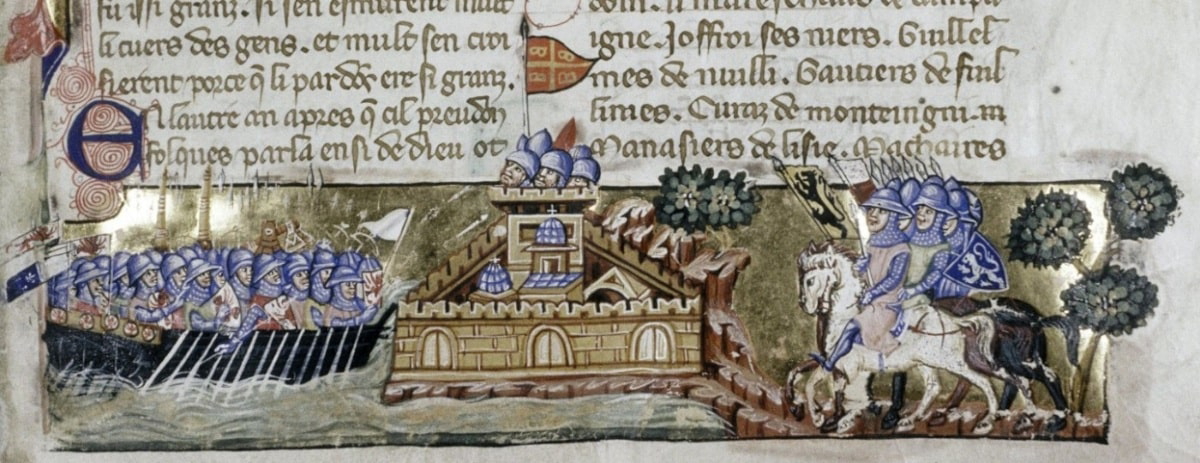 fu issi granz. si sen esmurent mult
li cuers des gens. et mult sen croi
sierent porce q̃ li pardõs ere si granz.
En lautre an apres q̃ cil preudõ
folques parla ensi de dieu ot
igne. Joffroi ses niers. Guillel
mes de nuilli. Gautiers de fuil
limes. Curaz de monteingni.
Manasiers de lisie. Machaires